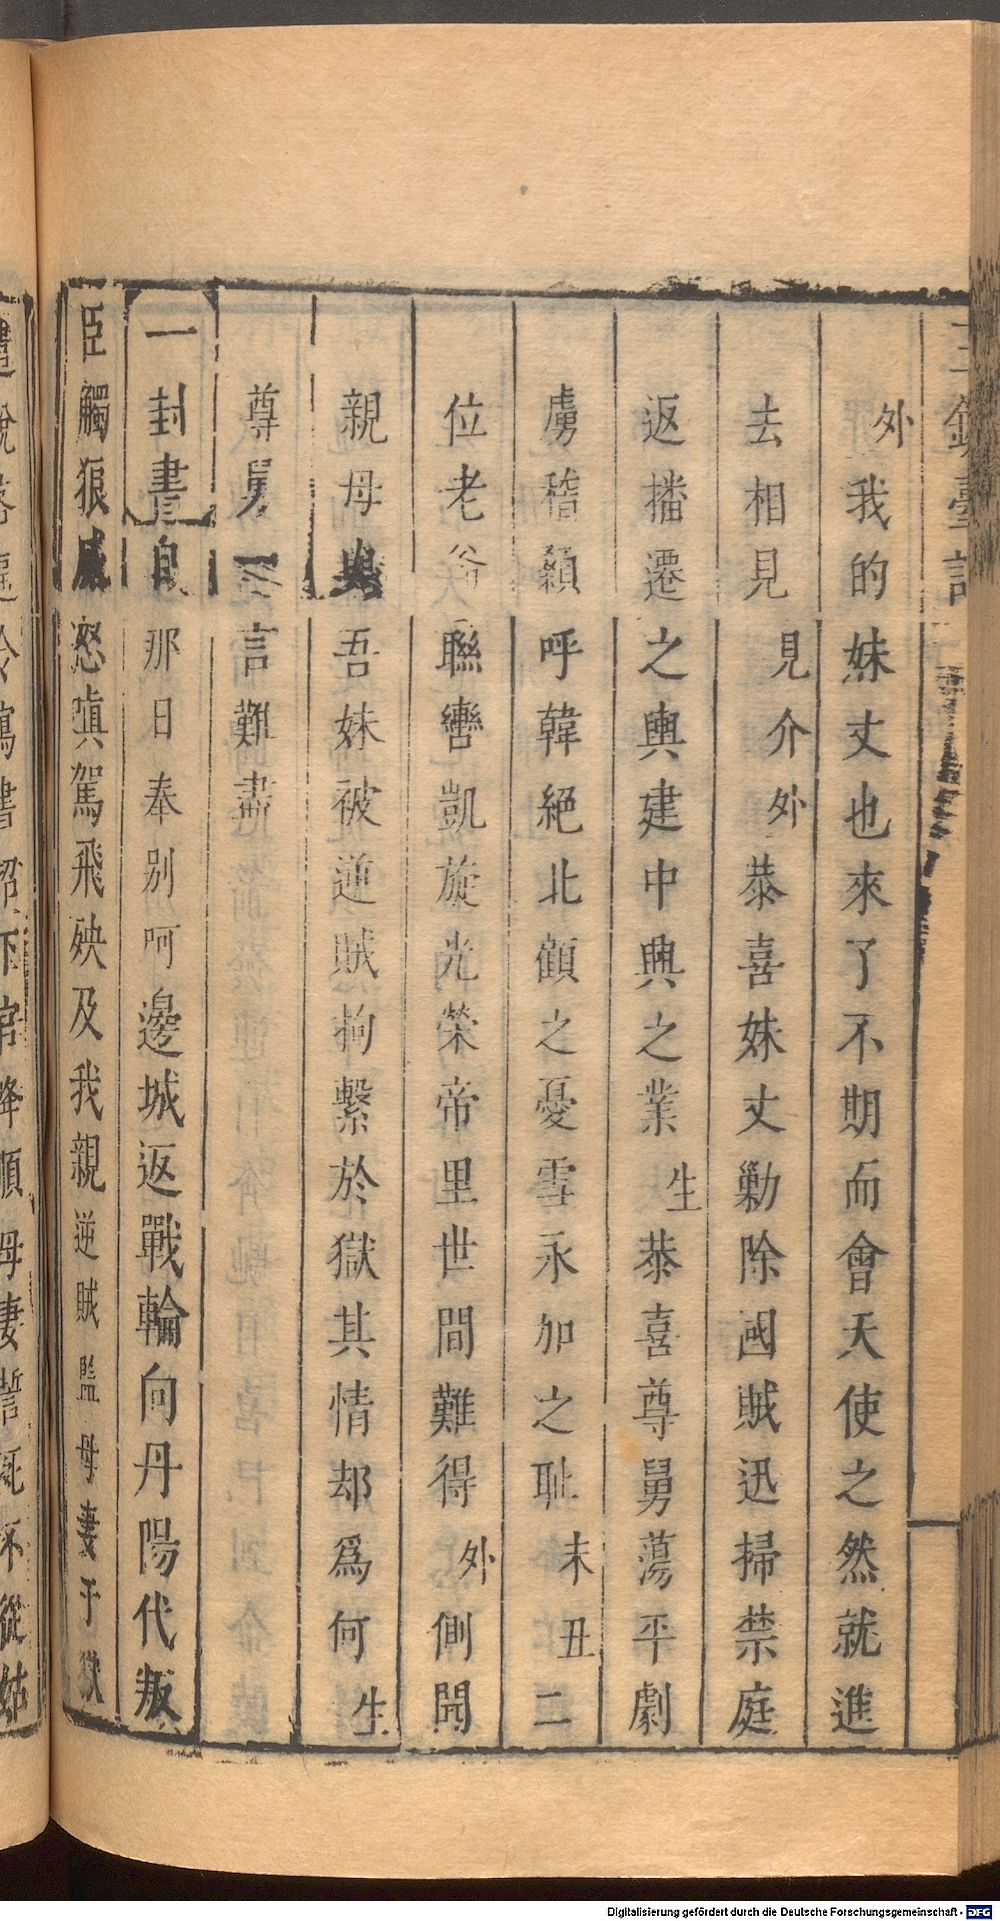 外我的妹丈也來了不期而會天使之然就進
去相見見介外恭喜妹丈勦除國賊迅掃禁庭
返播遷之輿建中興之業生恭喜尊舅蕩平劇
虜稽顙呼韓絕北顧之憂雪永加之耻末丑二
位老爷聯轡凱旋光榮帝里世間難得外側聞
親母與吾妹被逆賊拘繫於獄其情却爲何生
尊舅一言難盡
一封書自那日奉别呵邊城返戰輪向丹陽代叛
臣觸狼威怒嗔駕飛殃及我親逆賊監母妻于獄
Digitalisierung gefördert durch die Deutsche Forschungsgemeinschaft - DFG